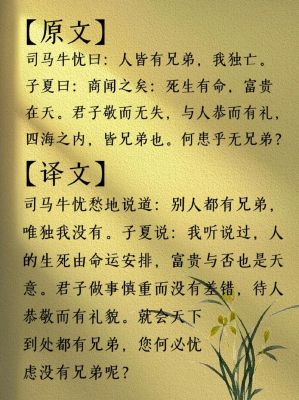 【原文】
司马牛忧曰：人皆有兄弟，我独亡。
子夏曰：商闻之矣：死生有命，富贵
在天。君子敬而无失，与人恭而有礼，
四海之内，皆兄弟也。何患乎无兄弟？
【译文】
司马牛忧愁地说道：别人都有兄弟，
唯独我没有。子夏说：我听说过，人
的生死由命运安排，富贵与否也是天
意。君子做事慎重而没有差错，待人
恭敬而有礼貌。就会天下
到处都有兄弟，您何必忧
虑没有兄弟呢？